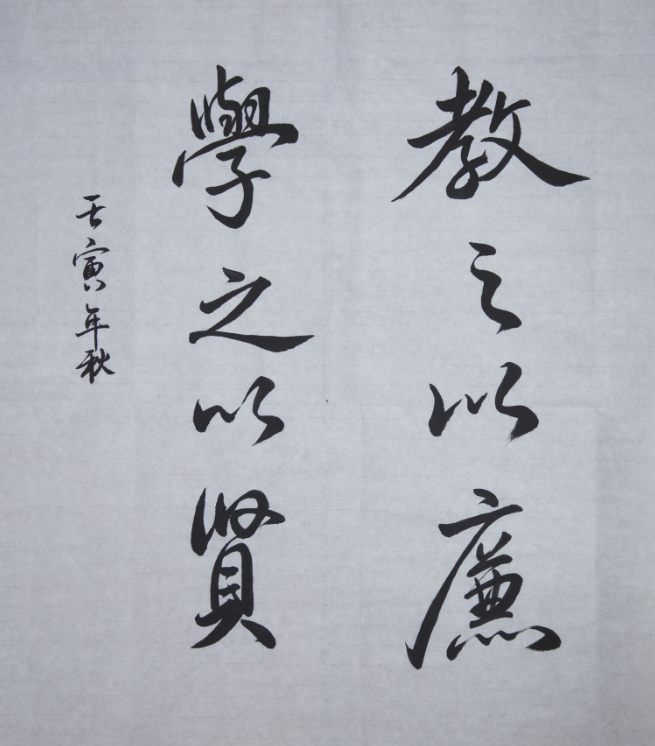 教之以廉
學之以賢
壬寅年秋